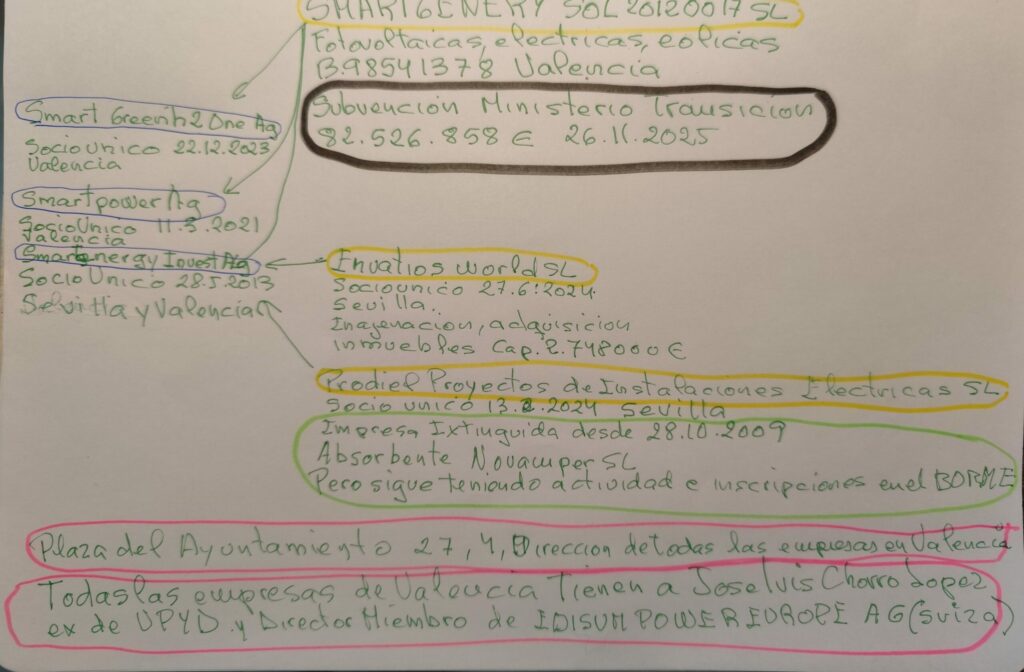 SMARTGENERY SOL 20120017 SL
Fotovoltaicas, electricas, eolicas
B98541378 Valencia
Subvención Ministerio Transicion
82.526.858 € 26.11.2025
Smart Greenh2 One Ag
Socio Unico 22.12.2023
Valencia
Smartpower Ag
Socio Unico 11.3.2021
Valencia
Smartenergy Invest Ag
Socio Unico 28.5.2013
Selvilla y Valencia
Envatios world SL
Sociounico 27.6.2024.
Sevilla..
Inagenacion, adquisicion
inmuebles Cap. 2.748000 €
Prodiel Proyectos de Instalaciones Electricas SL
Socio unico 13.2.2024 Sevilla
Impresa Extinguida desde 28.10.2009
Absorbente Novamper SL
Pero sigue teniendo actividad e inscripciones en el BORME
Plaza del Ayuntamiento 27, 4, Direccion de todas las empresas en Valencia
Todas las empresas de Valencia Tienen a Jose luis Chorro Lopez
ex de UPYD y Director Miembro de EDISUN POWER EUROPE AG (Suiza)